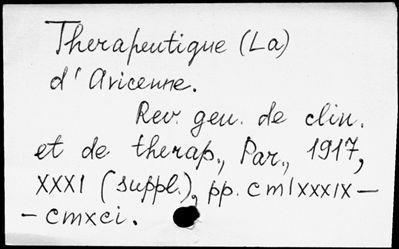 Therapeutique (La)
d'Avicenne.
Rev. gen. de clin.
et de therap., Par., 1917,
XXXI (suppl.), pp. cmlxxxix—
—cmxci.